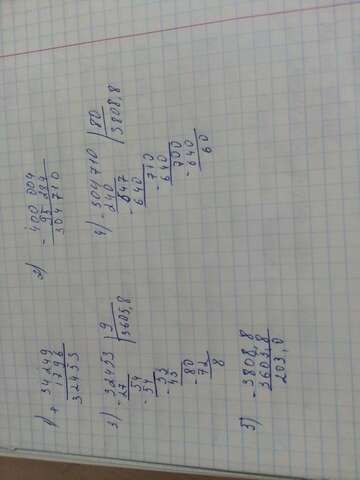 1) - 34249
1796
32453
2) - 400 004
95 294
304710
3) - 32453 | 9
27 | 3605,8
- 54
54
- 53
45
- 80
72
8
4) - 304710 | 80
240 | 3808,8
- 647
640
- 710
640
- 700
640
60
5) - 3808,8
3605,8
203,0